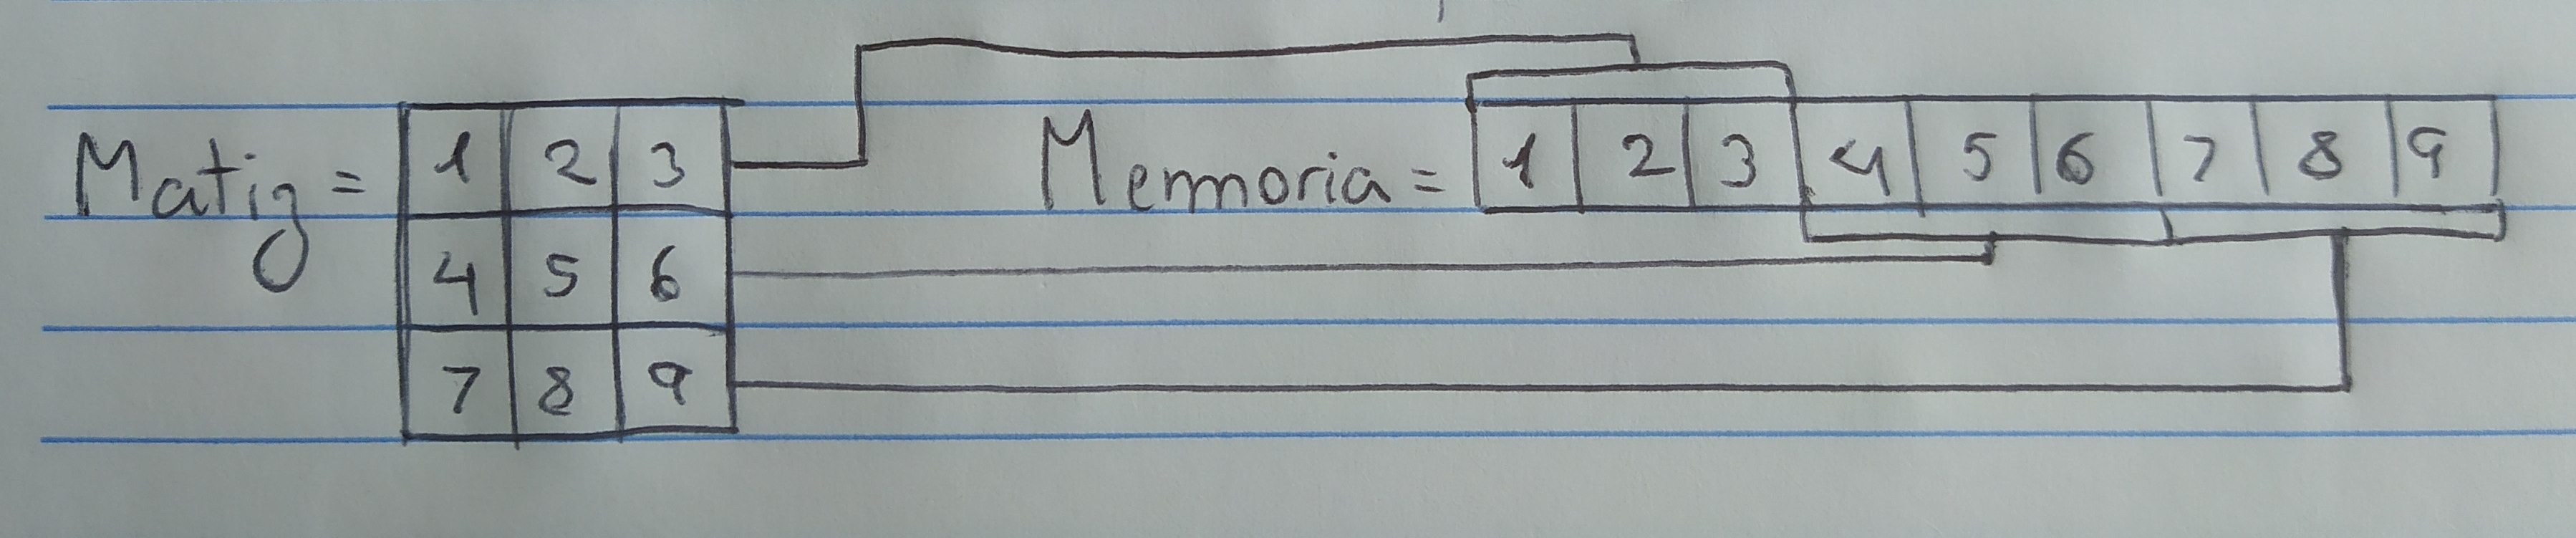 Matiz = 1 2 3
4 5 6
7 8 9
Memoria = 1 2 3 4 5 6 7 8 9